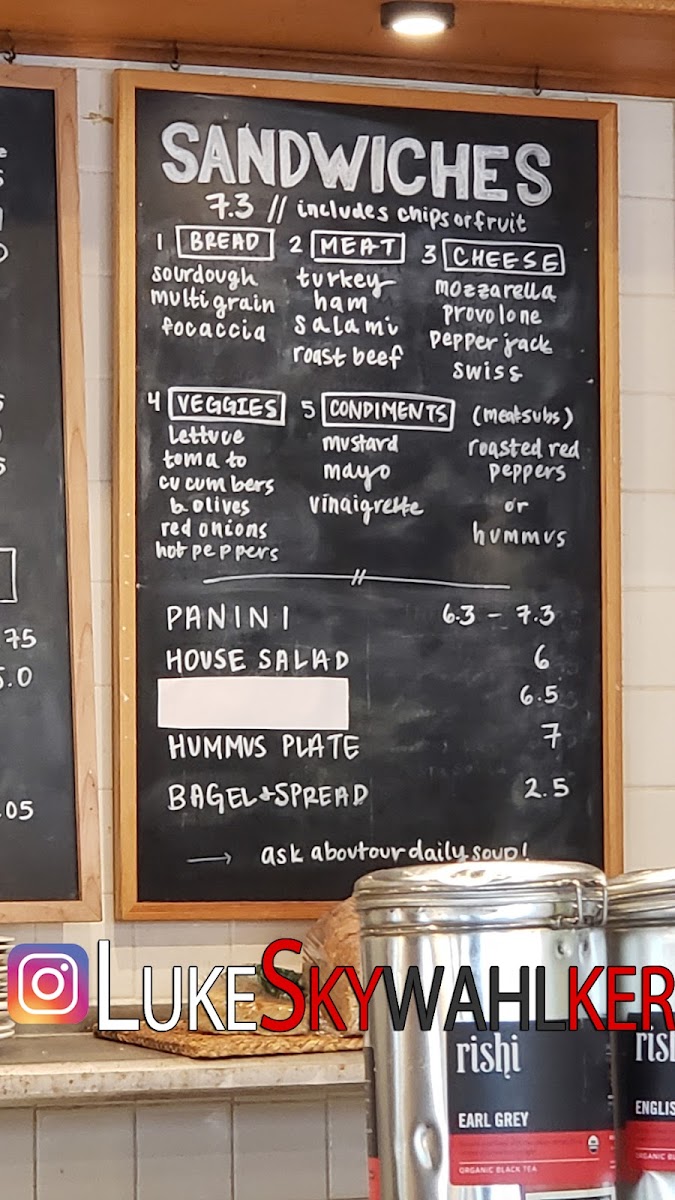 SANDWICHES
7.3 // includes chips or fruit
1 BREAD
sourdough
multigrain
focaccia
2 MEAT
turkey
ham
salami
roast beef
3 CHEESE
mozzarella
provolone
pepper jack
swiss
4 VEGGIES
lettuce
tomato
cucumbers
b. olives
red onions
hot peppers
5 CONDIMENTS
mustard
mayo
vinaigrette
(meat subs)
roasted red
peppers
or
hummus
PANINI 6.3 - 7.3
HOUSE SALAD 6
6.5
HUMMUS PLATE 7
BAGEL + SPREAD 2.5
→ ask about our daily soup!
75
5.0
.05
LUKESKYWAHLKER
rishi
EARL GREY
ORGANIC BLACK TEA